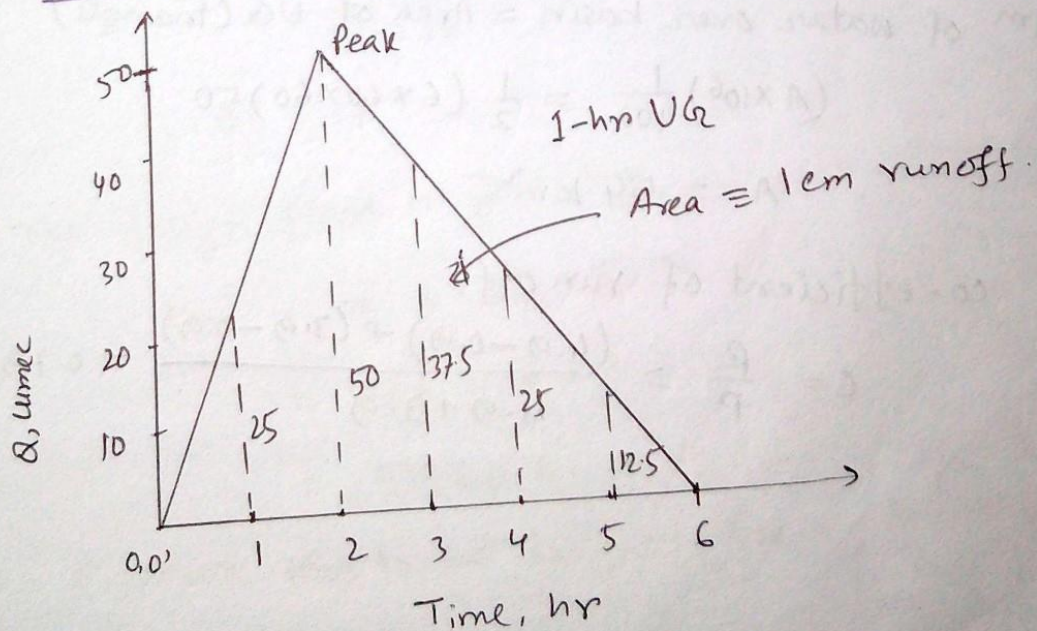 50
Peak
1-hr UG
40
Area ≡ 1 cm runoff.
30
20
10
Q, cumec
25
50
37.5
25
12.5
0,0
1
2
3
4
5
6
Time, hr